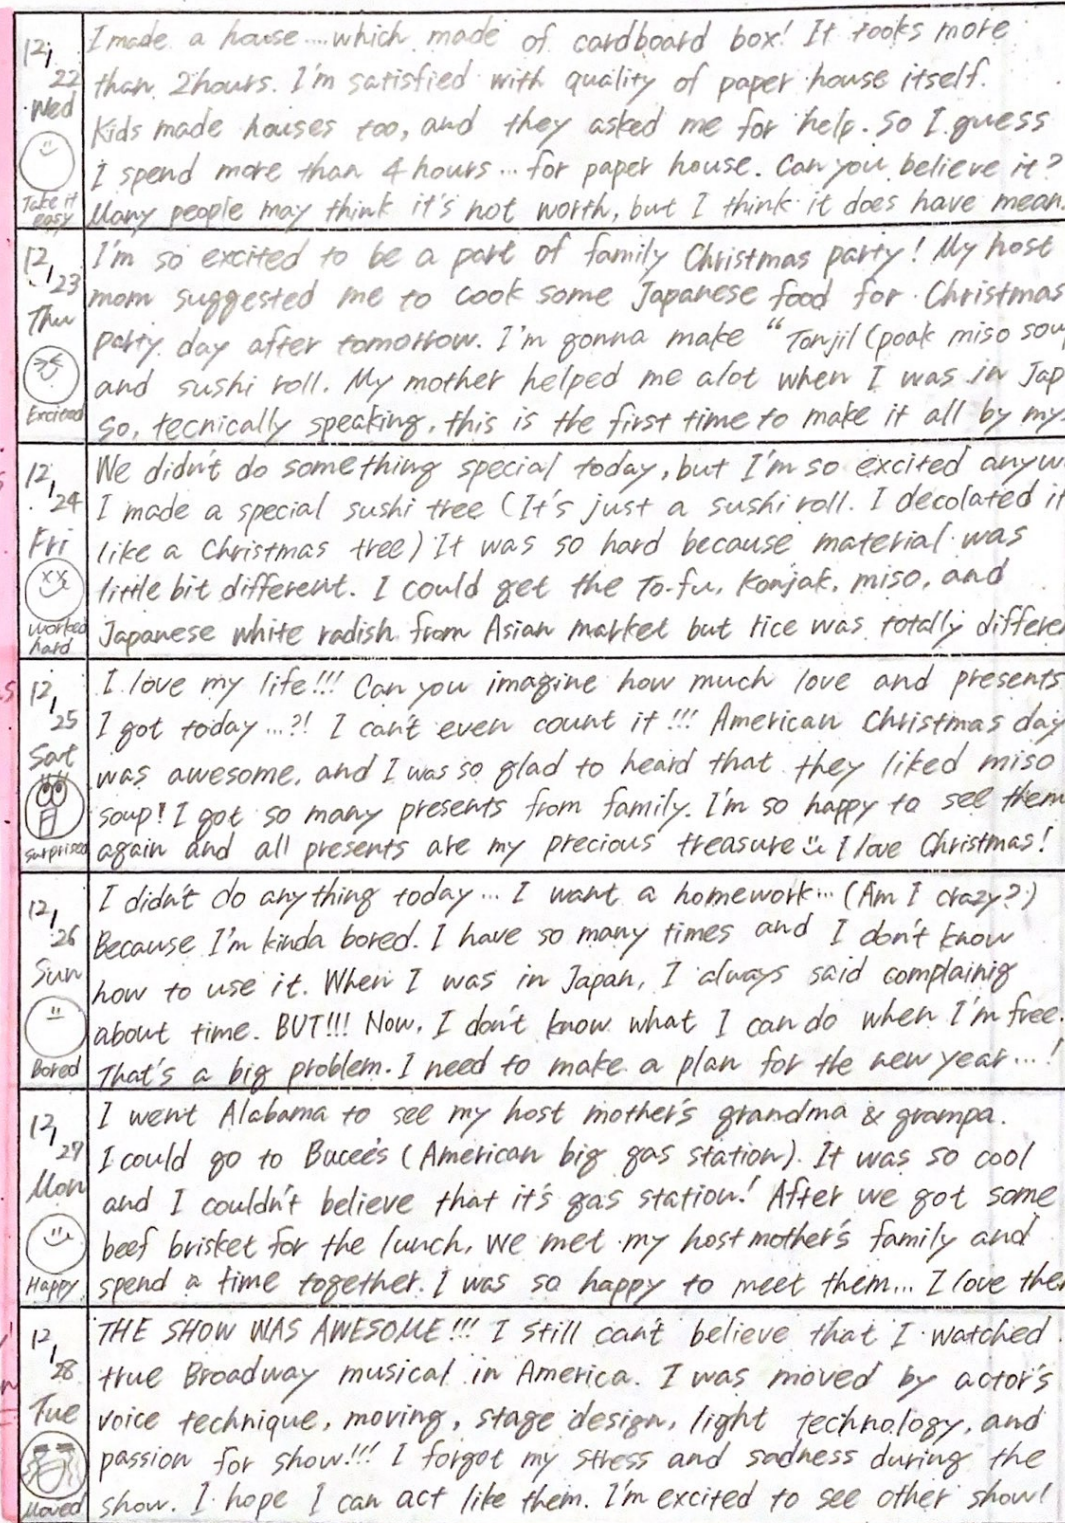 12/22 Wed
Take it easy
I made a house....which made of cardboard box! It tooks more
than 2hours. I'm satisfied with quality of paper house itself.
Kids made houses too, and they asked me for help. So I guess
I spend more than 4 hours... for paper house. Can you believe it?
Many people may think it's not worth, but I think it does have mean
12/23 Thu
Excited
I'm so excited to be a part of family Christmas party! My host
mom suggested me to cook some Japanese food for Christmas
party day after tomorrow. I'm gonna make "Tonjil (poak miso sou
and sushi roll. My mother helped me alot when I was in Jap
So, tecnically speaking, this is the first time to make it all by my
12/24 Fri
worked hard
We didn't do something special today, but I'm so excited anyw
I made a special sushi tree (It's just a sushi roll. I decolated it
like a Christmas tree) It was so hard because material was
little bit different. I could get the To-fu, Konjak, miso, and
Japanese white radish from Asian market but rice was totally differe
12/25 Sat
surprised
I love my life!!! Can you imagine how much love and presents
I got today...?! I can't even count it!!! American Christmas day
was awesome, and I was so glad to heard that they liked miso
soup! I got so many presents from family. I'm so happy to see them
again and all presents are my precious treasure I love Christmas!
12/26 Sun
Bored
I didn't do anything today... I want a homework... (Am I crazy?)
Because I'm kinda bored. I have so many times and I don't know
how to use it. When I was in Japan, I always said complainig
about time. BUT!!! Now, I don't know what I can do when I'm free.
That's a big problem. I need to make a plan for the new year...!
12/27 Mon
Happy
I went Alabama to see my host mother's grandma & grampa.
I could go to Bucee's (American big gas station). It was so cool
and I couldn't believe that it's gas station! After we got some
beef brisket for the lunch, we met my host mother's family and
spend a time together. I was so happy to meet them... I love the
12/28 Tue
Moved
THE SHOW WAS AWESOME!!! I still can't believe that I watched
true Broadway musical in America. I was moved by actor's
voice technique, moving, stage design, light technology, and
passion for show!!! I forgot my stress and sadness during the
show. I hope I can act like them. I'm excited to see other show!